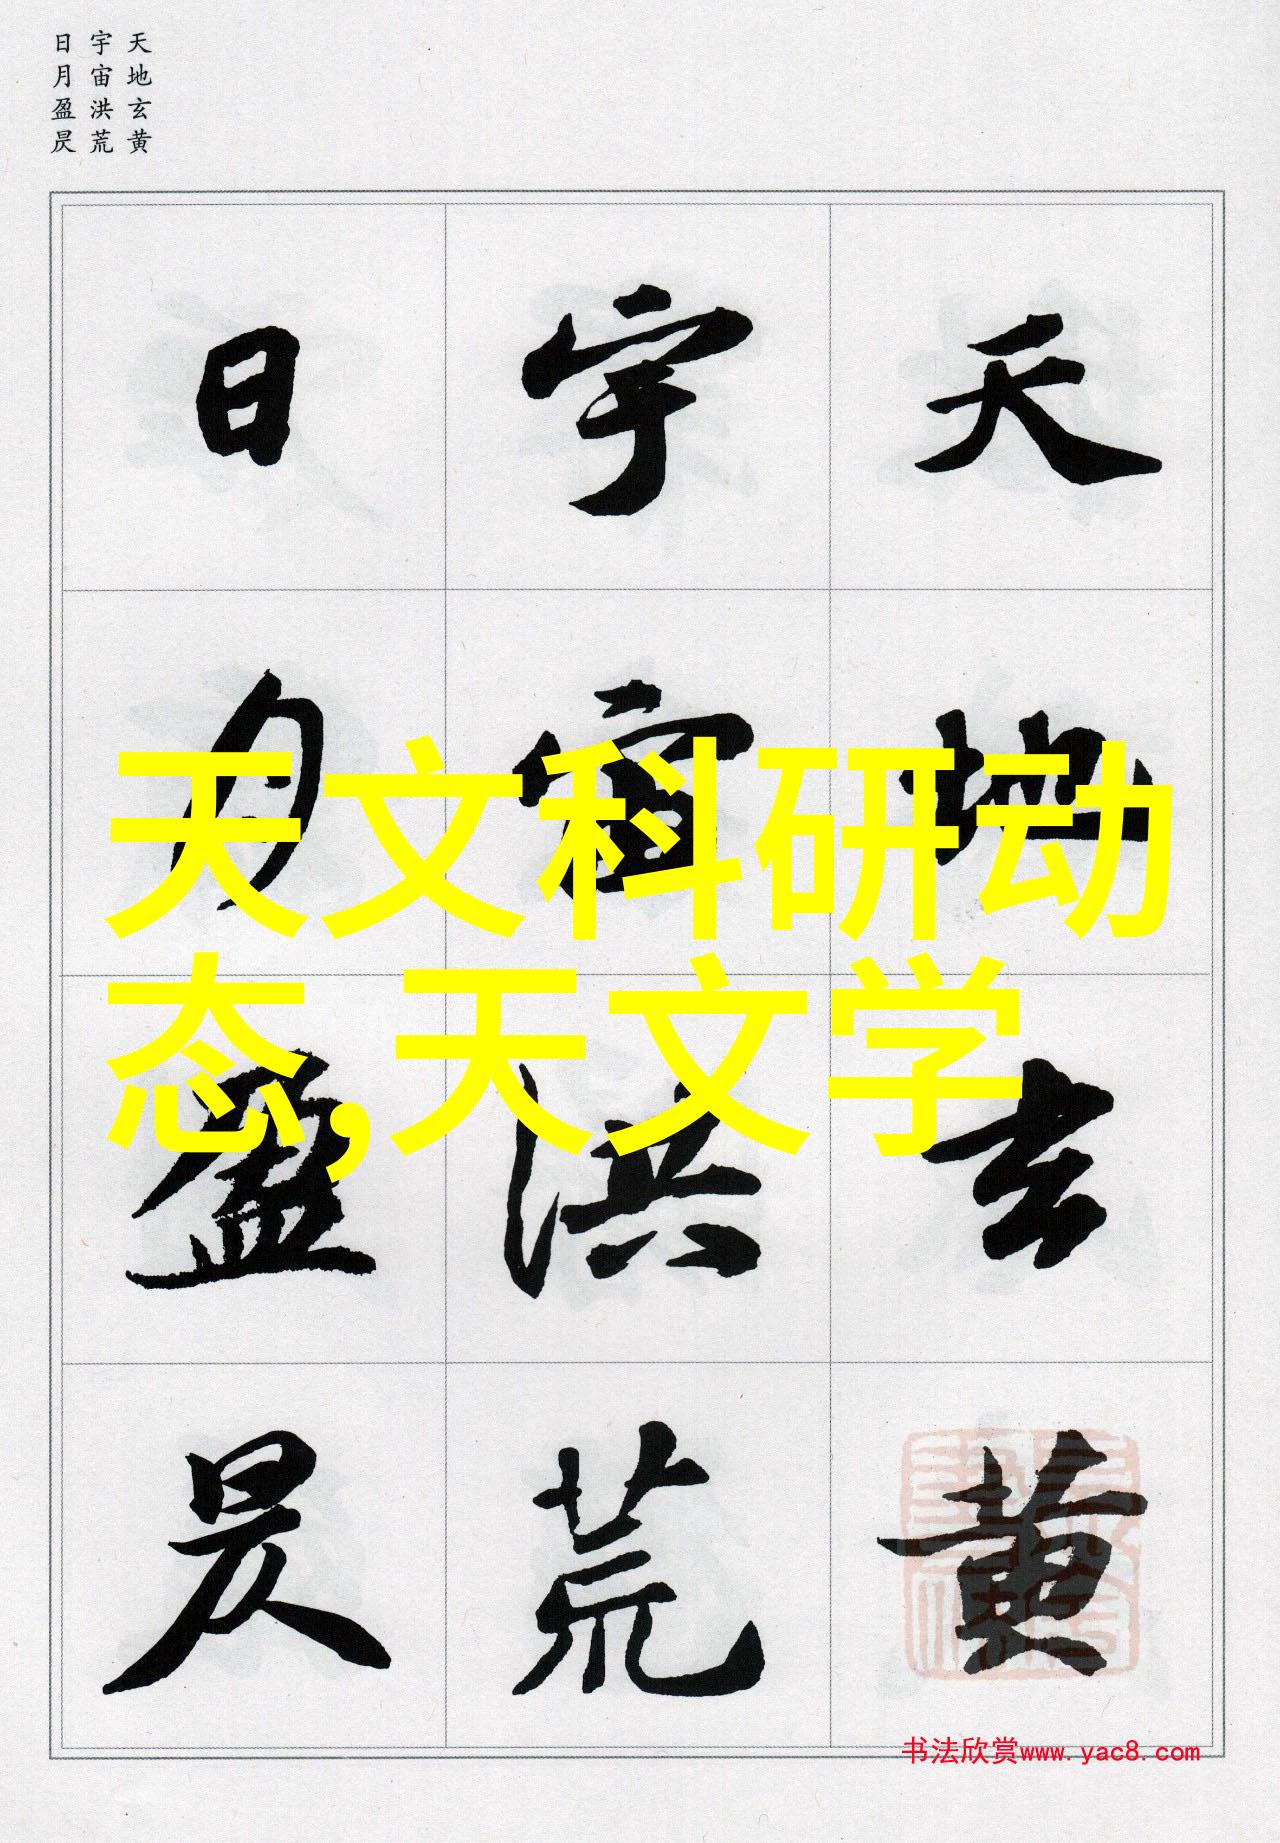 天地玄黄
宇宙洪荒
日月盈昃
天地玄黄
宇宙洪荒
日月盈昃
天文科研动
态,天文学
书法欣赏www.yac8.com